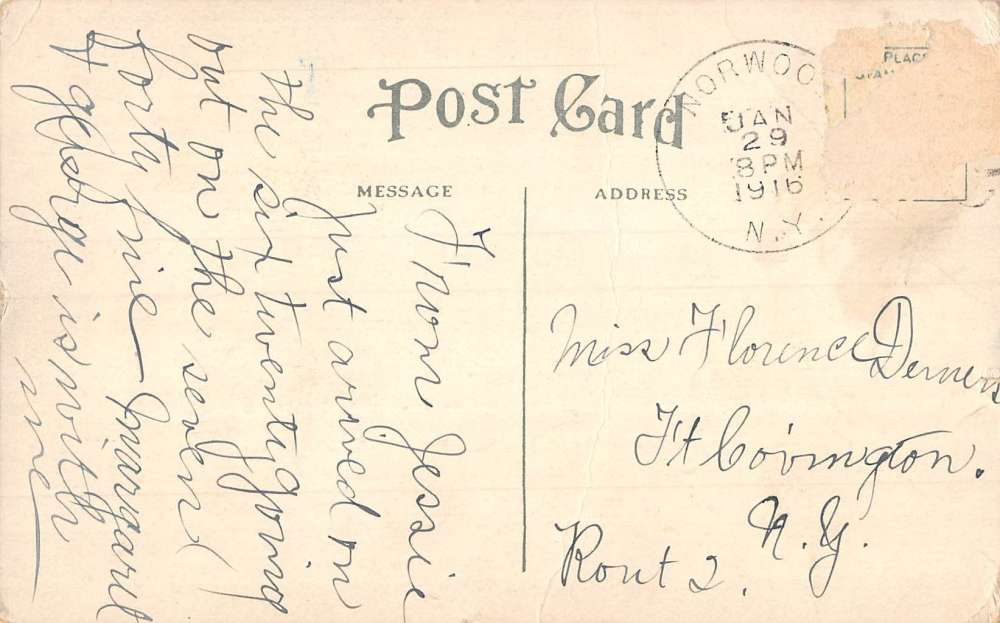 Post Card
MESSAGE
ADDRESS
PLACE
NORWOO
JAN
29
8 PM
1916
N.Y.
From Jessie
Just arived on
the six twenty going
out on the seven
forty five Margaret
& George is with
me
Miss Florence Demers
Ft Covington.
N.Y.
Rout 2.